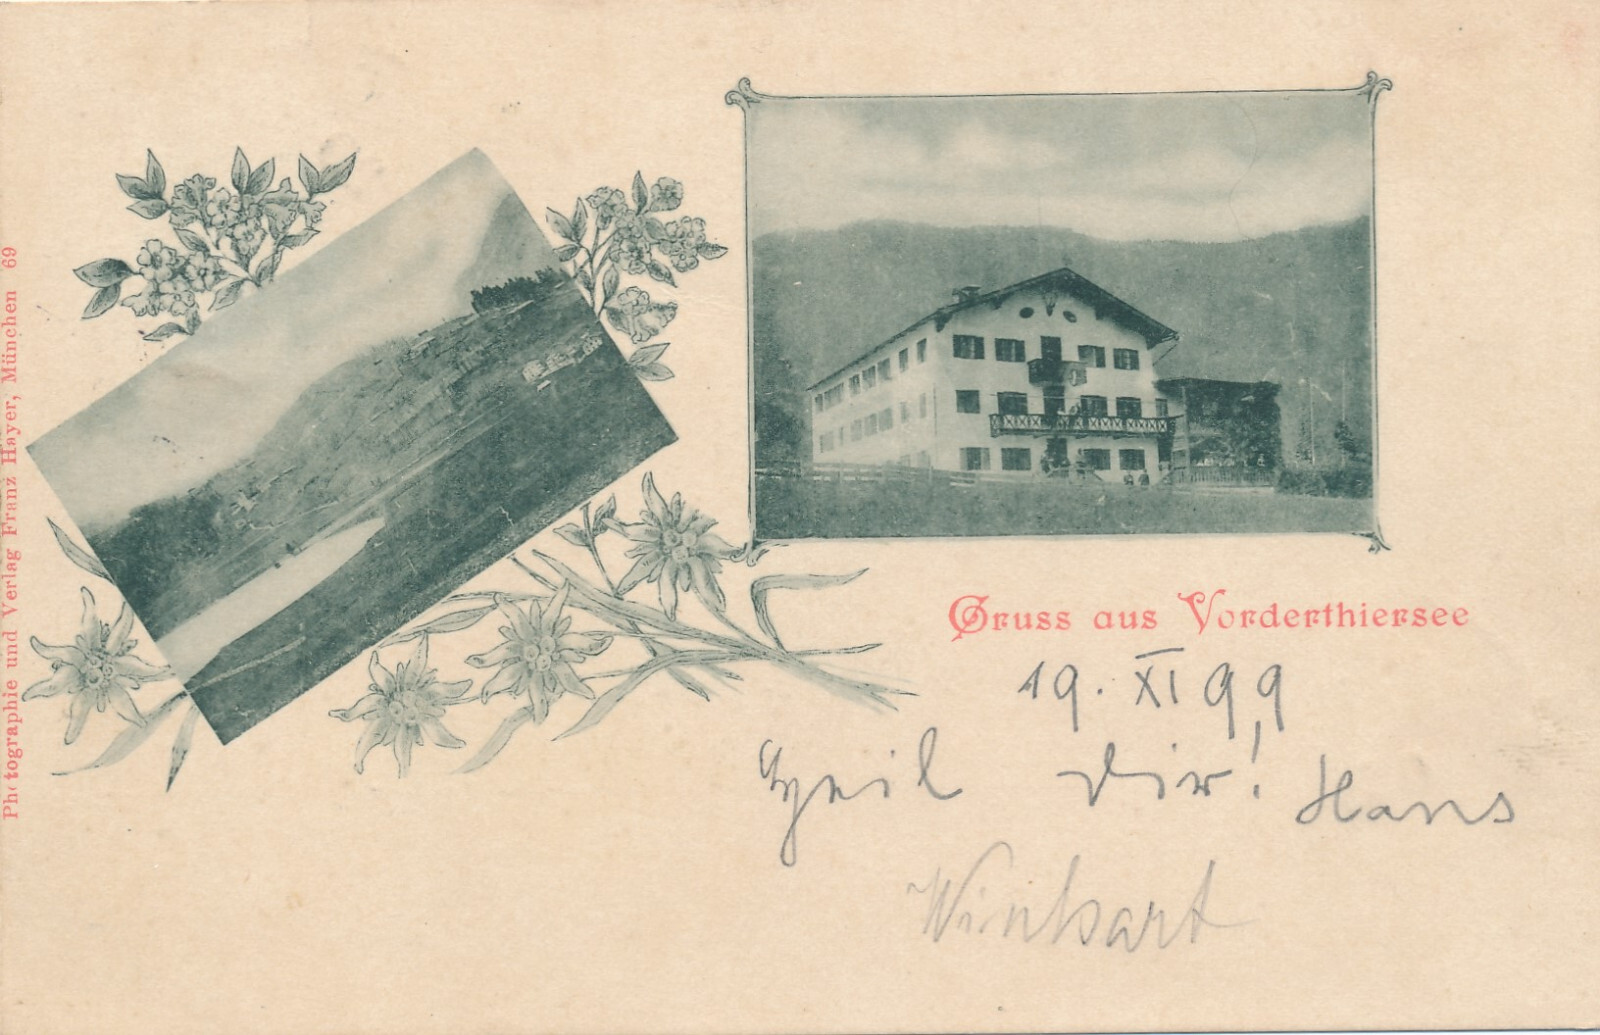 Photographie und Verlag Franz Hayer, München 69
Gruss aus Vorderthiersee
19. XI 99
Heil Dir! Hans
Winhart